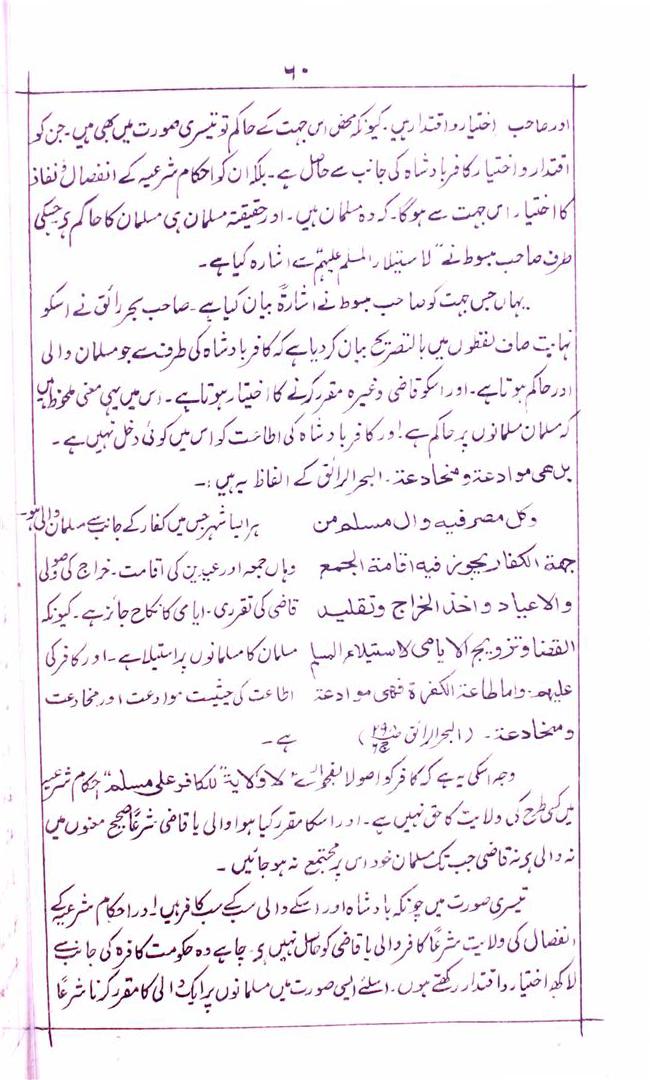 ۶۰
اور صاحب اختیار و اقتدار ہیں۔ کیونکہ محض اس جہت کے حاکم تو تیسری صورت میں بھی ہیں۔ جن کو
اقتدار و اختیار کافر بادشاہ کی جانب سے حاصل ہے۔ بلکہ ان کو احکام شرعیہ کے انفصال و نفاذ
کا اختیار اس جہت سے ہوگا۔ کہ وہ مسلمان ہیں۔ اور حقیقۃ مسلمان ہی مسلمان کا حاکم ہے جسکی
طرف صاحب مبسوط نے "لاستیلاء المسلم علیہم" سے اشارہ کیا ہے۔
یہاں جس جہت کو صاحب مبسوط نے اشارۃً بیان کیا ہے۔ صاحب بحر رائق نے اسکو
نہایت صاف لفظوں میں بالتصریح بیان کر دیا ہے کہ کافر بادشاہ کی طرف سے جو مسلمان والی
اور حاکم ہوتا ہے۔ اور اسکو قاضی وغیرہ مقرر کرنے کا اختیار ہوتا ہے۔ اس میں یہی معنی ملحوظ ہیں
کہ مسلمان مسلمانوں پر حاکم ہے اور کافر بادشاہ کی اطاعت کو اس میں کوئی دخل نہیں ہے۔
بل ھی موادعۃ ومخادعۃ۔ البحر الرائق کے الفاظ یہ ہیں:۔
وکل مصر فیہ وال مسلم من ہر ایسا شہر جس میں کفار کے جانب سے مسلمان والی ہو۔
جھۃ الکفار یجوز فیہ اقامۃ الجمع وہاں جمعہ اور عیدین کی اقامت۔ خراج کی وصولی
والاعیاد واخذ الخراج وتقلید قاضی کی تقرری۔ ایامی کا نکاح جائز ہے۔ کیونکہ
القضا وتزویج الایامی لاستیلاء المسلم مسلمان کا مسلمانوں پر استیلا ہے۔ اور کافر کی
علیھم۔ واما طاعۃ الکفرۃ فھی موادعۃ اطاعت کی حیثیت موادعت اور مخادعت
ومخادعۃ۔ (البحر الرائق) ہے۔
وجہ اسکی یہ ہے کہ کافر کو اصولا بفحوائے "لا ولایۃ للکافر علی مسلم" احکام شرعیہ
میں کسی طرح کی ولایت کا حق نہیں ہے۔ اور اسکا مقرر کیا ہوا والی یا قاضی شرعاً صحیح معنوں میں
نہ والی ہے نہ قاضی جب تک مسلمان خود اس پر مجتمع نہ ہو جائیں۔
تیسری صورت میں چونکہ بادشاہ اور اسکے والی سب کے سب کافر ہیں۔ اور احکام شرعیہ کے
انفصال کی ولایت شرعاً کافر والی یا قاضی کو حاصل نہیں ہے۔ چاہے وہ حکومت کافرہ کی جانب سے
لاکھ اختیار و اقتدار رکھتے ہوں۔ اسلئے ایسی صورت میں مسلمانوں پر ایک والی کا مقرر کرنا شرعاً